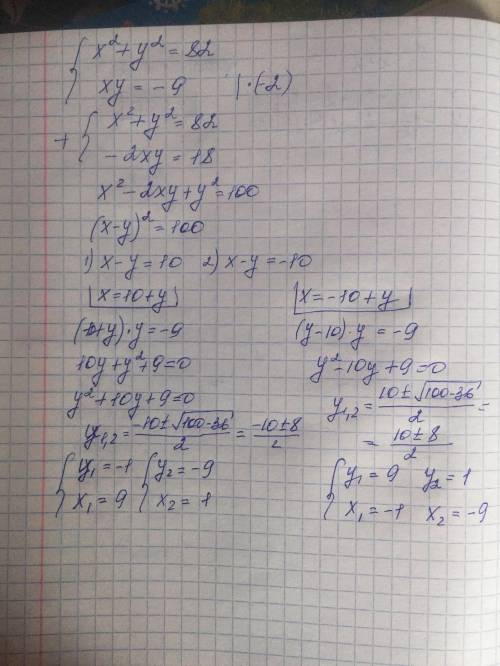 { x² + y² = 82
xy = -9 | · (-2)
+ { x² + y² = 82
- 2xy = 18
x² - 2xy + y² = 100
(x-y)² = 100
1) x - y = 10 2) x - y = -10
x = 10 + y
(10+y) · y = -9
10y + y² + 9 = 0
y² + 10y + 9 = 0
y₁,₂ = (-10 ± √100-36)/2 = (-10 ± 8)/2
{ y₁ = -1 { y₂ = -9
x₁ = 9 x₂ = 1
x = -10 + y
(y-10) · y = -9
y² - 10y + 9 = 0
y₁,₂ = (10 ± √100-36)/2 =
= (10 ± 8)/2
{ y₁ = 9 y₂ = 1
x₁ = -1 x₂ = -9